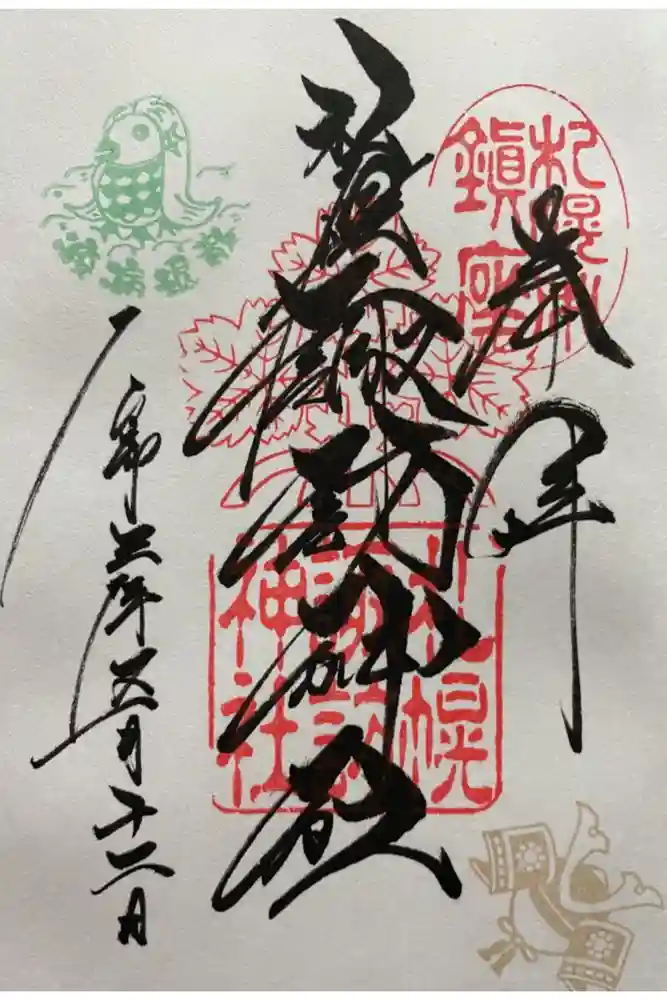 奉拝
札幌
鎮座
諏訪神社
札幌
諏訪
神社
令和三年五月十二日
疫病退散